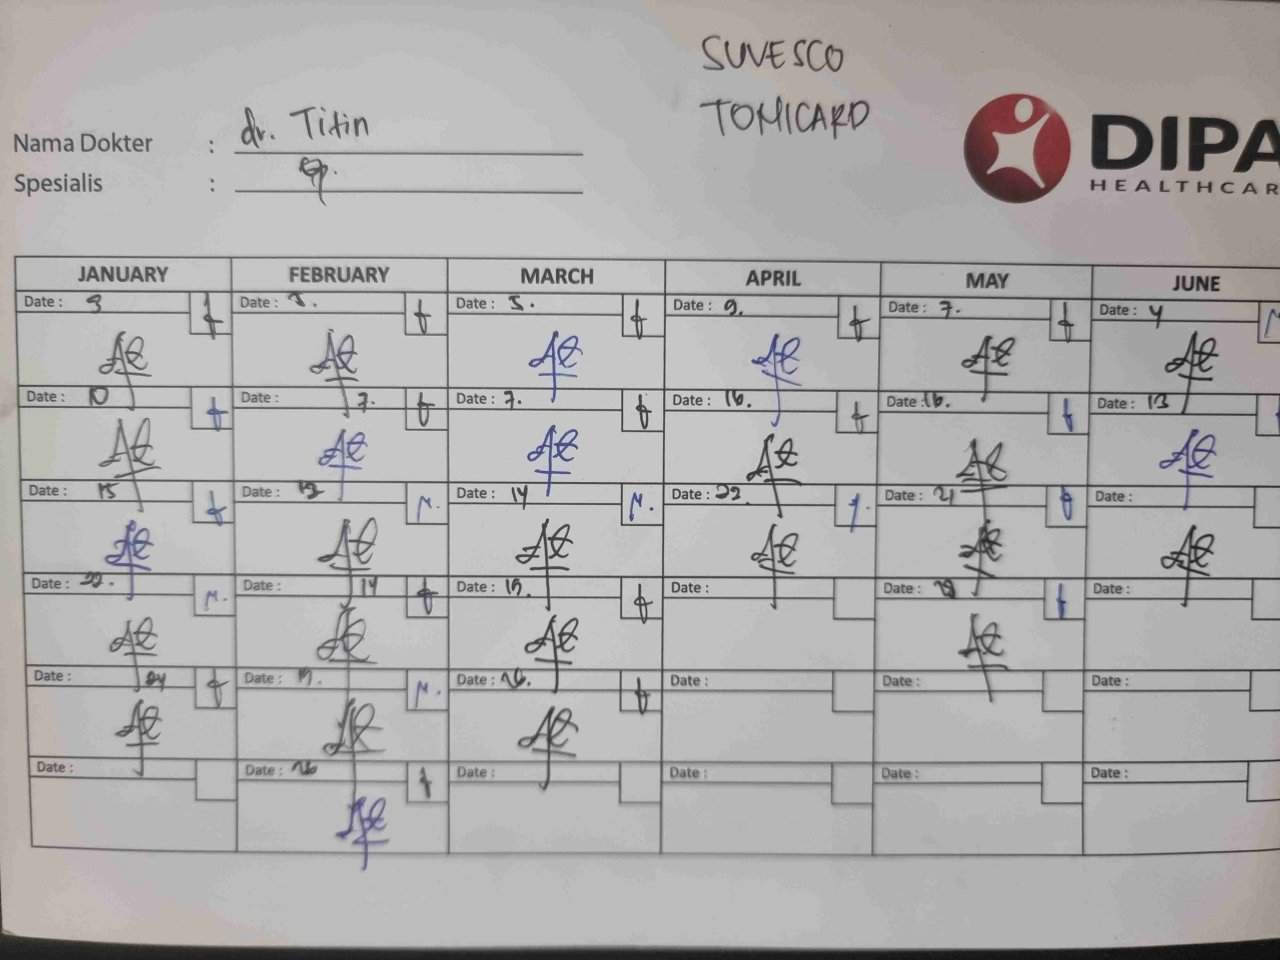 SUVESCO
TOMICARD
Nama Dokter : dr. Titin
Spesialis :
DIPA
HEALTHCAR
JANUARY FEBRUARY MARCH APRIL MAY JUNE
Date : 3 Date : 5. Date : 5. Date : 9. Date : 7. Date : 4
Date : 10 Date : 7. Date : 7. Date : 16. Date : 16. Date : 13
Date : 15 Date : 12 Date : 14 Date : 22. Date : 21 Date :
Date : 22. Date : 14 Date : 15. Date : Date : Date :
Date : 24 Date : Date : 26. Date : Date : Date :
Date : Date : 26 Date : Date : Date : Date :